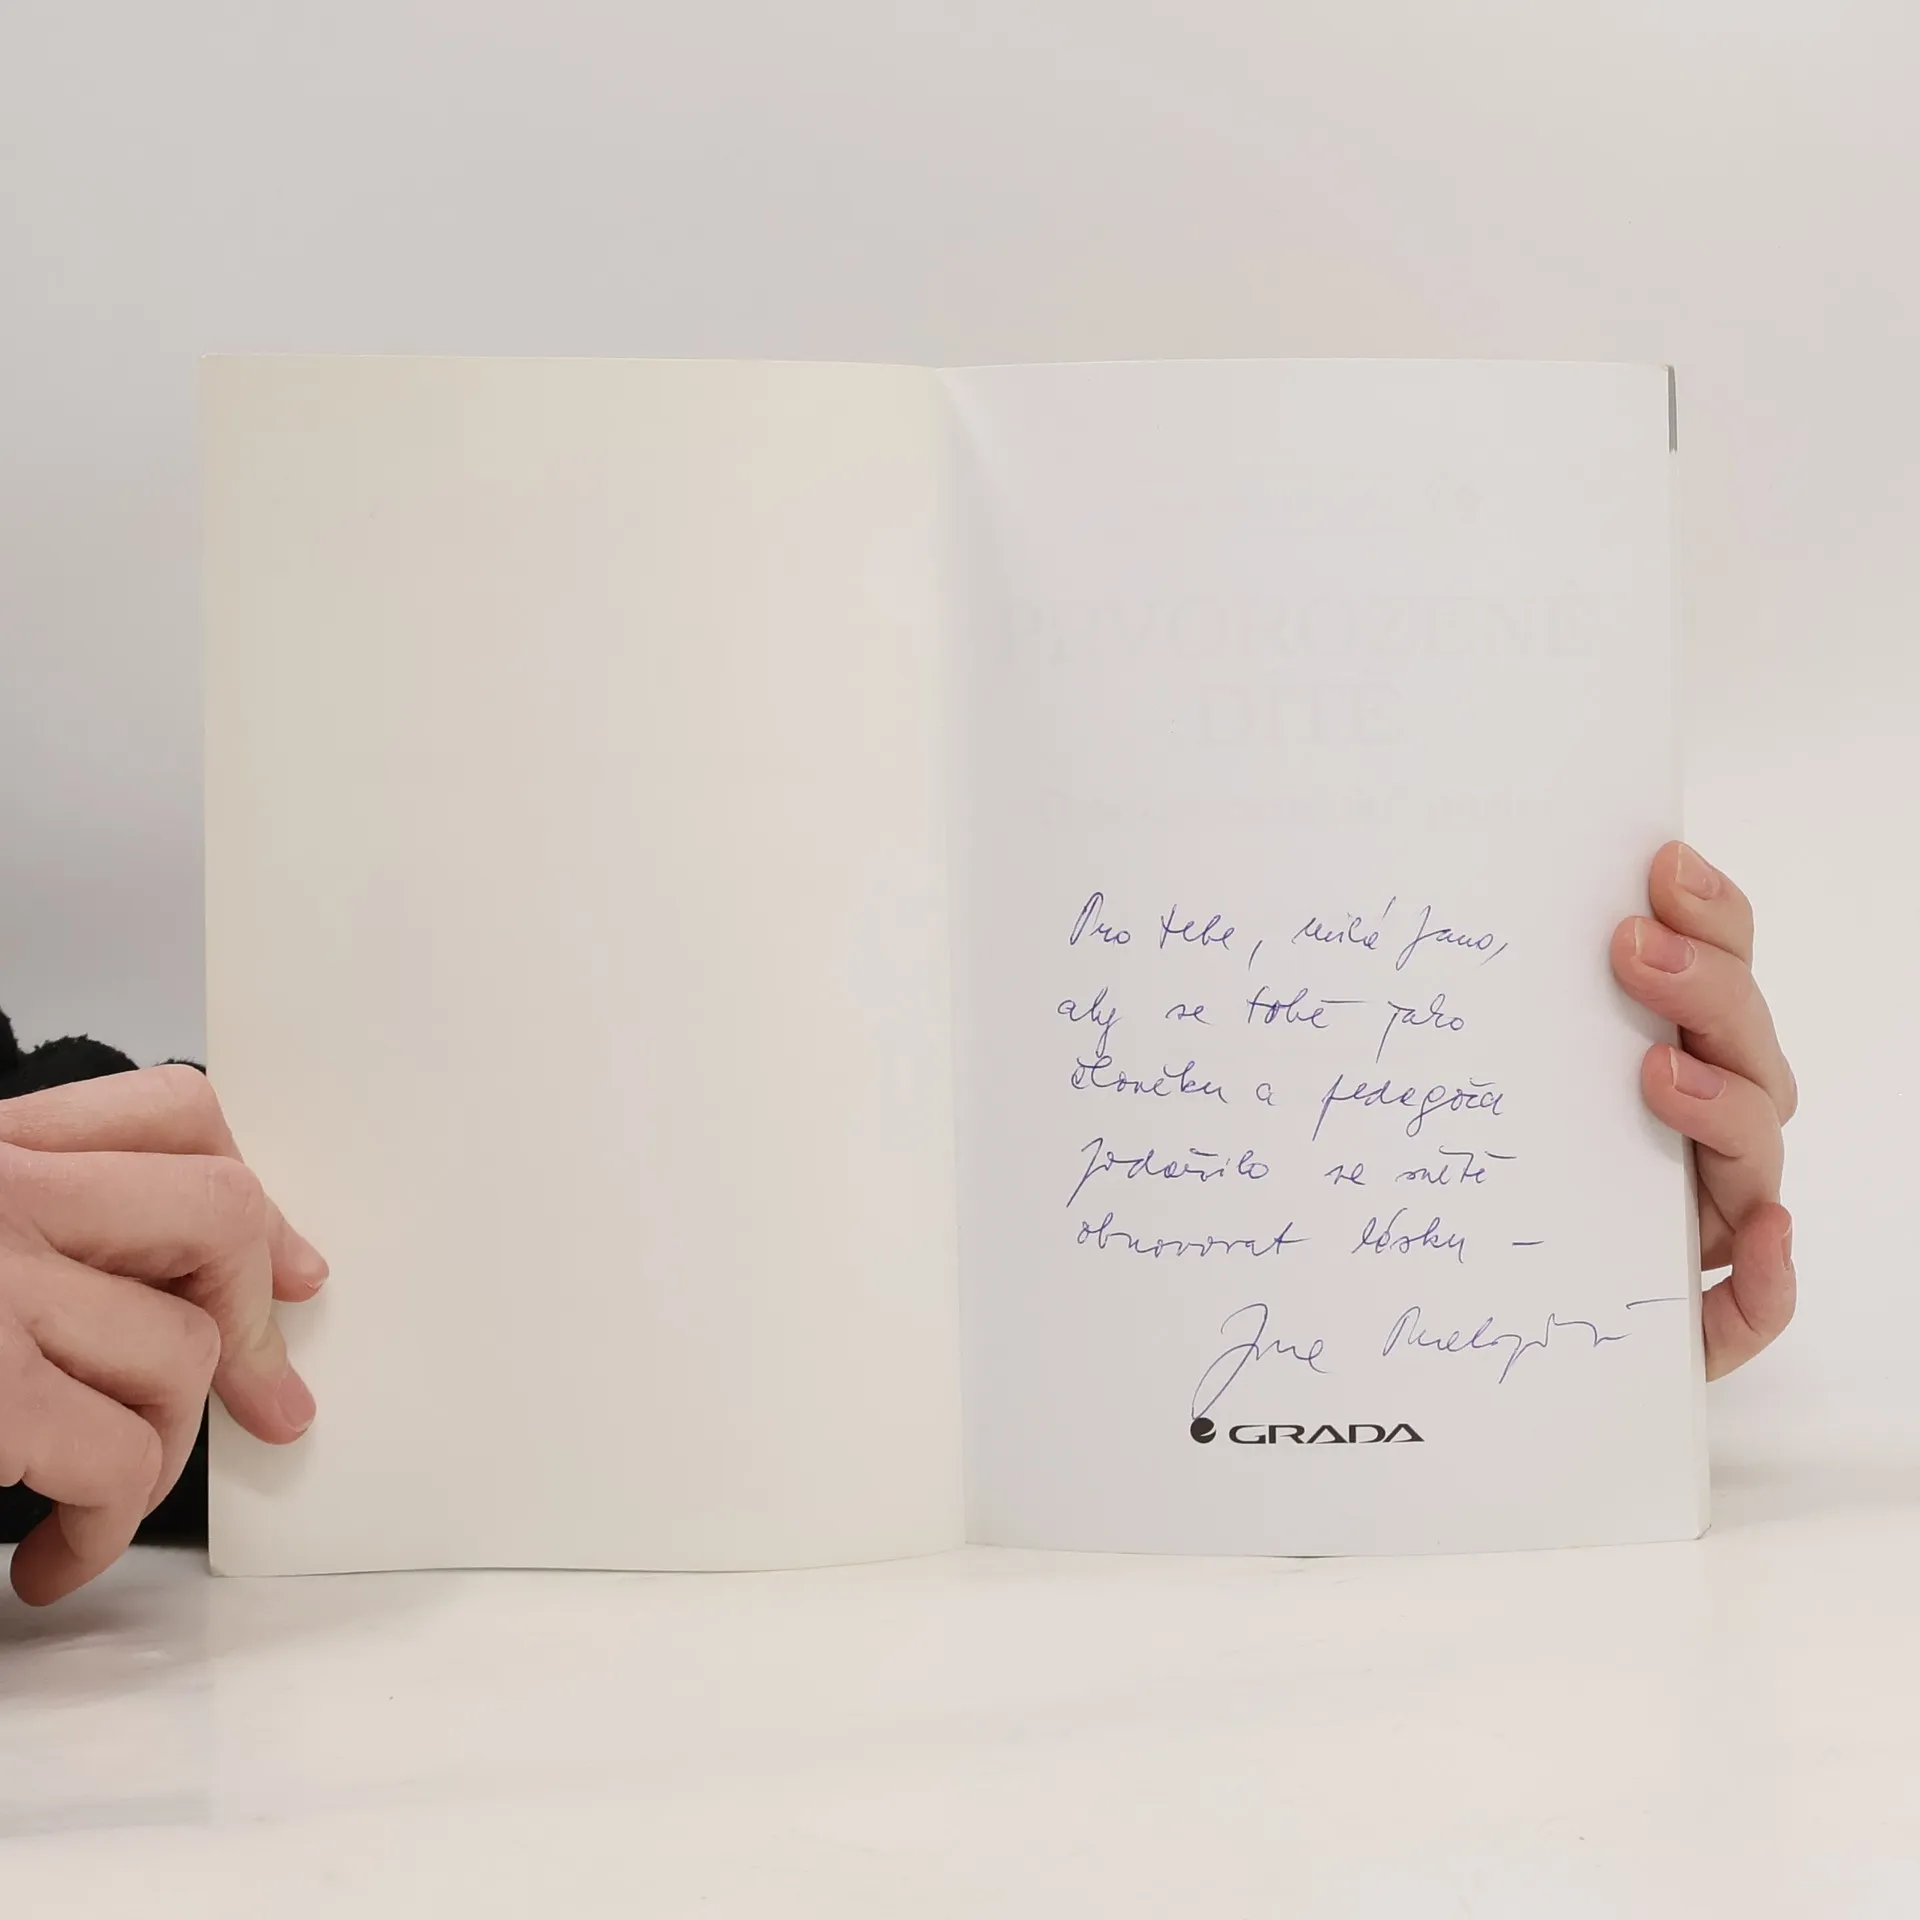 PRVOROZENÉ
DÍTĚ
Pro tebe, milá Jano,
aby se tobě jako
člověku a pedagožce
podařilo ve světě
obnovovat lásku –
GRADA